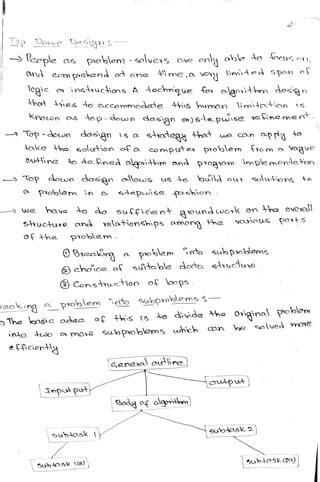 Top Down Design :-
→ People as problem-solvers are only able to focus on,
and comprehend at one time, a very limited span of
logic or instructions. A technique for algorithm design
that tries to accommodate this human limitation is
known as top-down design (or) stepwise refinement.
→ Top-down design is a strategy that we can apply to
take the solution of a computer problem from a vague
outline to defined algorithm and program implementation.
→ Top down design allows us to build our solutions to
a problem in a stepwise fashion.
→ we have to do sufficient ground work on the overall
structure and relationships among the various parts
of the problem.
① Breaking a problem into subproblems
② choice of suitable data structure.
③ Construction of loops.
eaking a problem into subproblems :-
The basic idea of this is to divide the original problem
into two or more subproblems which can be solved more
efficiently
General outline
Input put
output
Body of algorithm
subtask 1
subtask 2
subtask 1(a)
subtask 2(a)